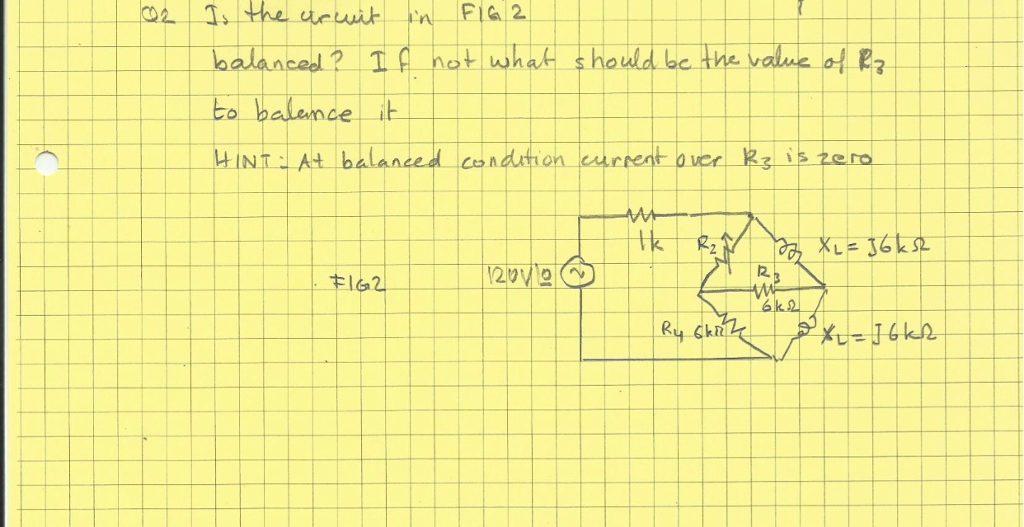 Q2 Is the circuit in FIG 2
balanced? If not what should be the value of R3
to balance it
HINT: At balanced condition current over R3 is zero
1k
R2
XL = J6kΩ
R3
FIG2
120V∠0
6kΩ
R4 6kΩ
XL = J6kΩ